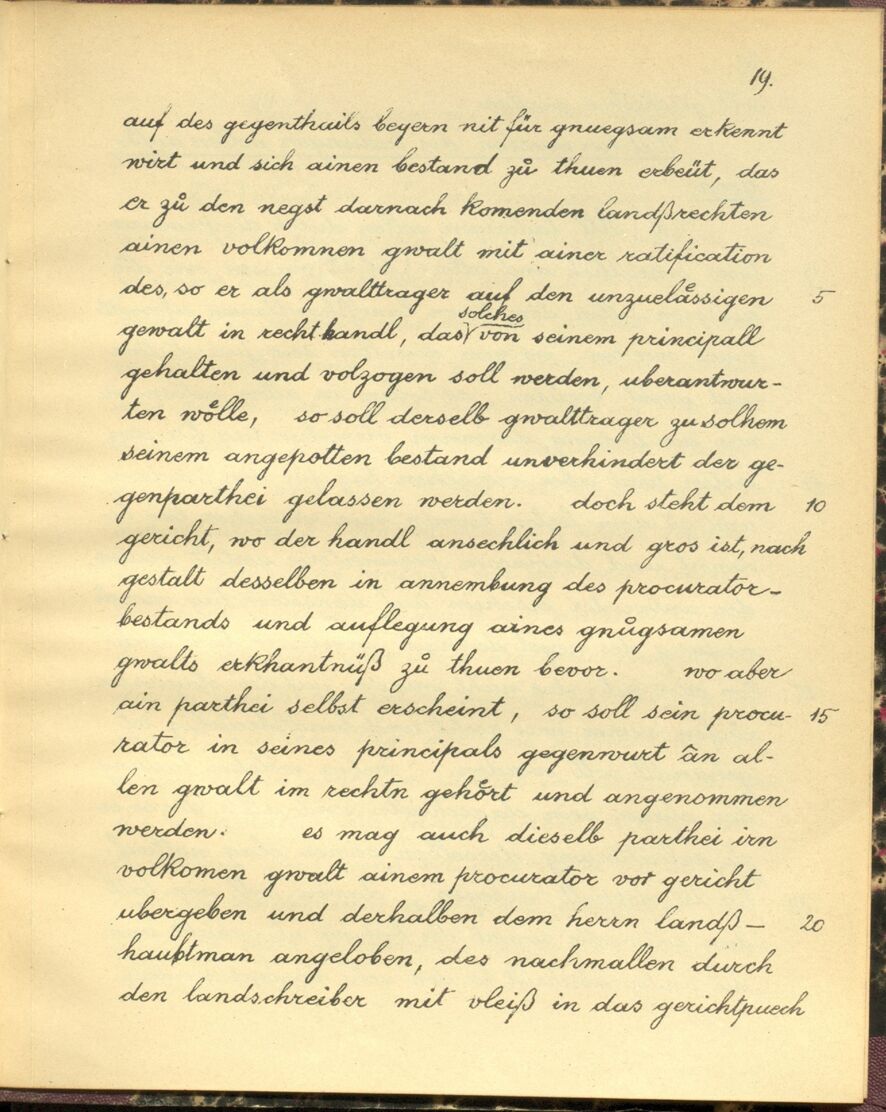 19.
auf des gegenthails begern nit für gnuegsam erkennt
wirt und sich ainen bestand zů thuen erbeüt, das
er zů den negst darnach komenden landßrechten
ainen volkomnen gwalt mit ainer ratification
des, so er als gwalttrager auf den unzuelässigen 5
gewalt in recht handl, das solches von seinem principall
gehalten und volzogen soll werden, uberantwur-
ten wölle, so soll derselb gwalttrager zu solhem
seinem angepotten bestand unverhindert der ge-
genparthei gelassen werden. doch steht dem 10
gericht, wo der handl ansechlich und gros ist, nach
gestalt desselben in annembung des procurator-
bestands und auflegung aines gnůgsamen
gwalts erkhantnüß zů thuen bevor. wo aber
ain parthei selbst erscheint, so soll sein procu- 15
rator in seines principals gegenwurt än al-
len gwalt im rechtn gehört und angenommen
werden. es mag auch dieselb parthei irn
volkomen gwalt ainem procurator vor gericht
ubergeben und derhalben dem herrn landß- 20
haubtman angeloben, des nachmallen durch
den landschreiber mit vleiß in das gerichtpuech